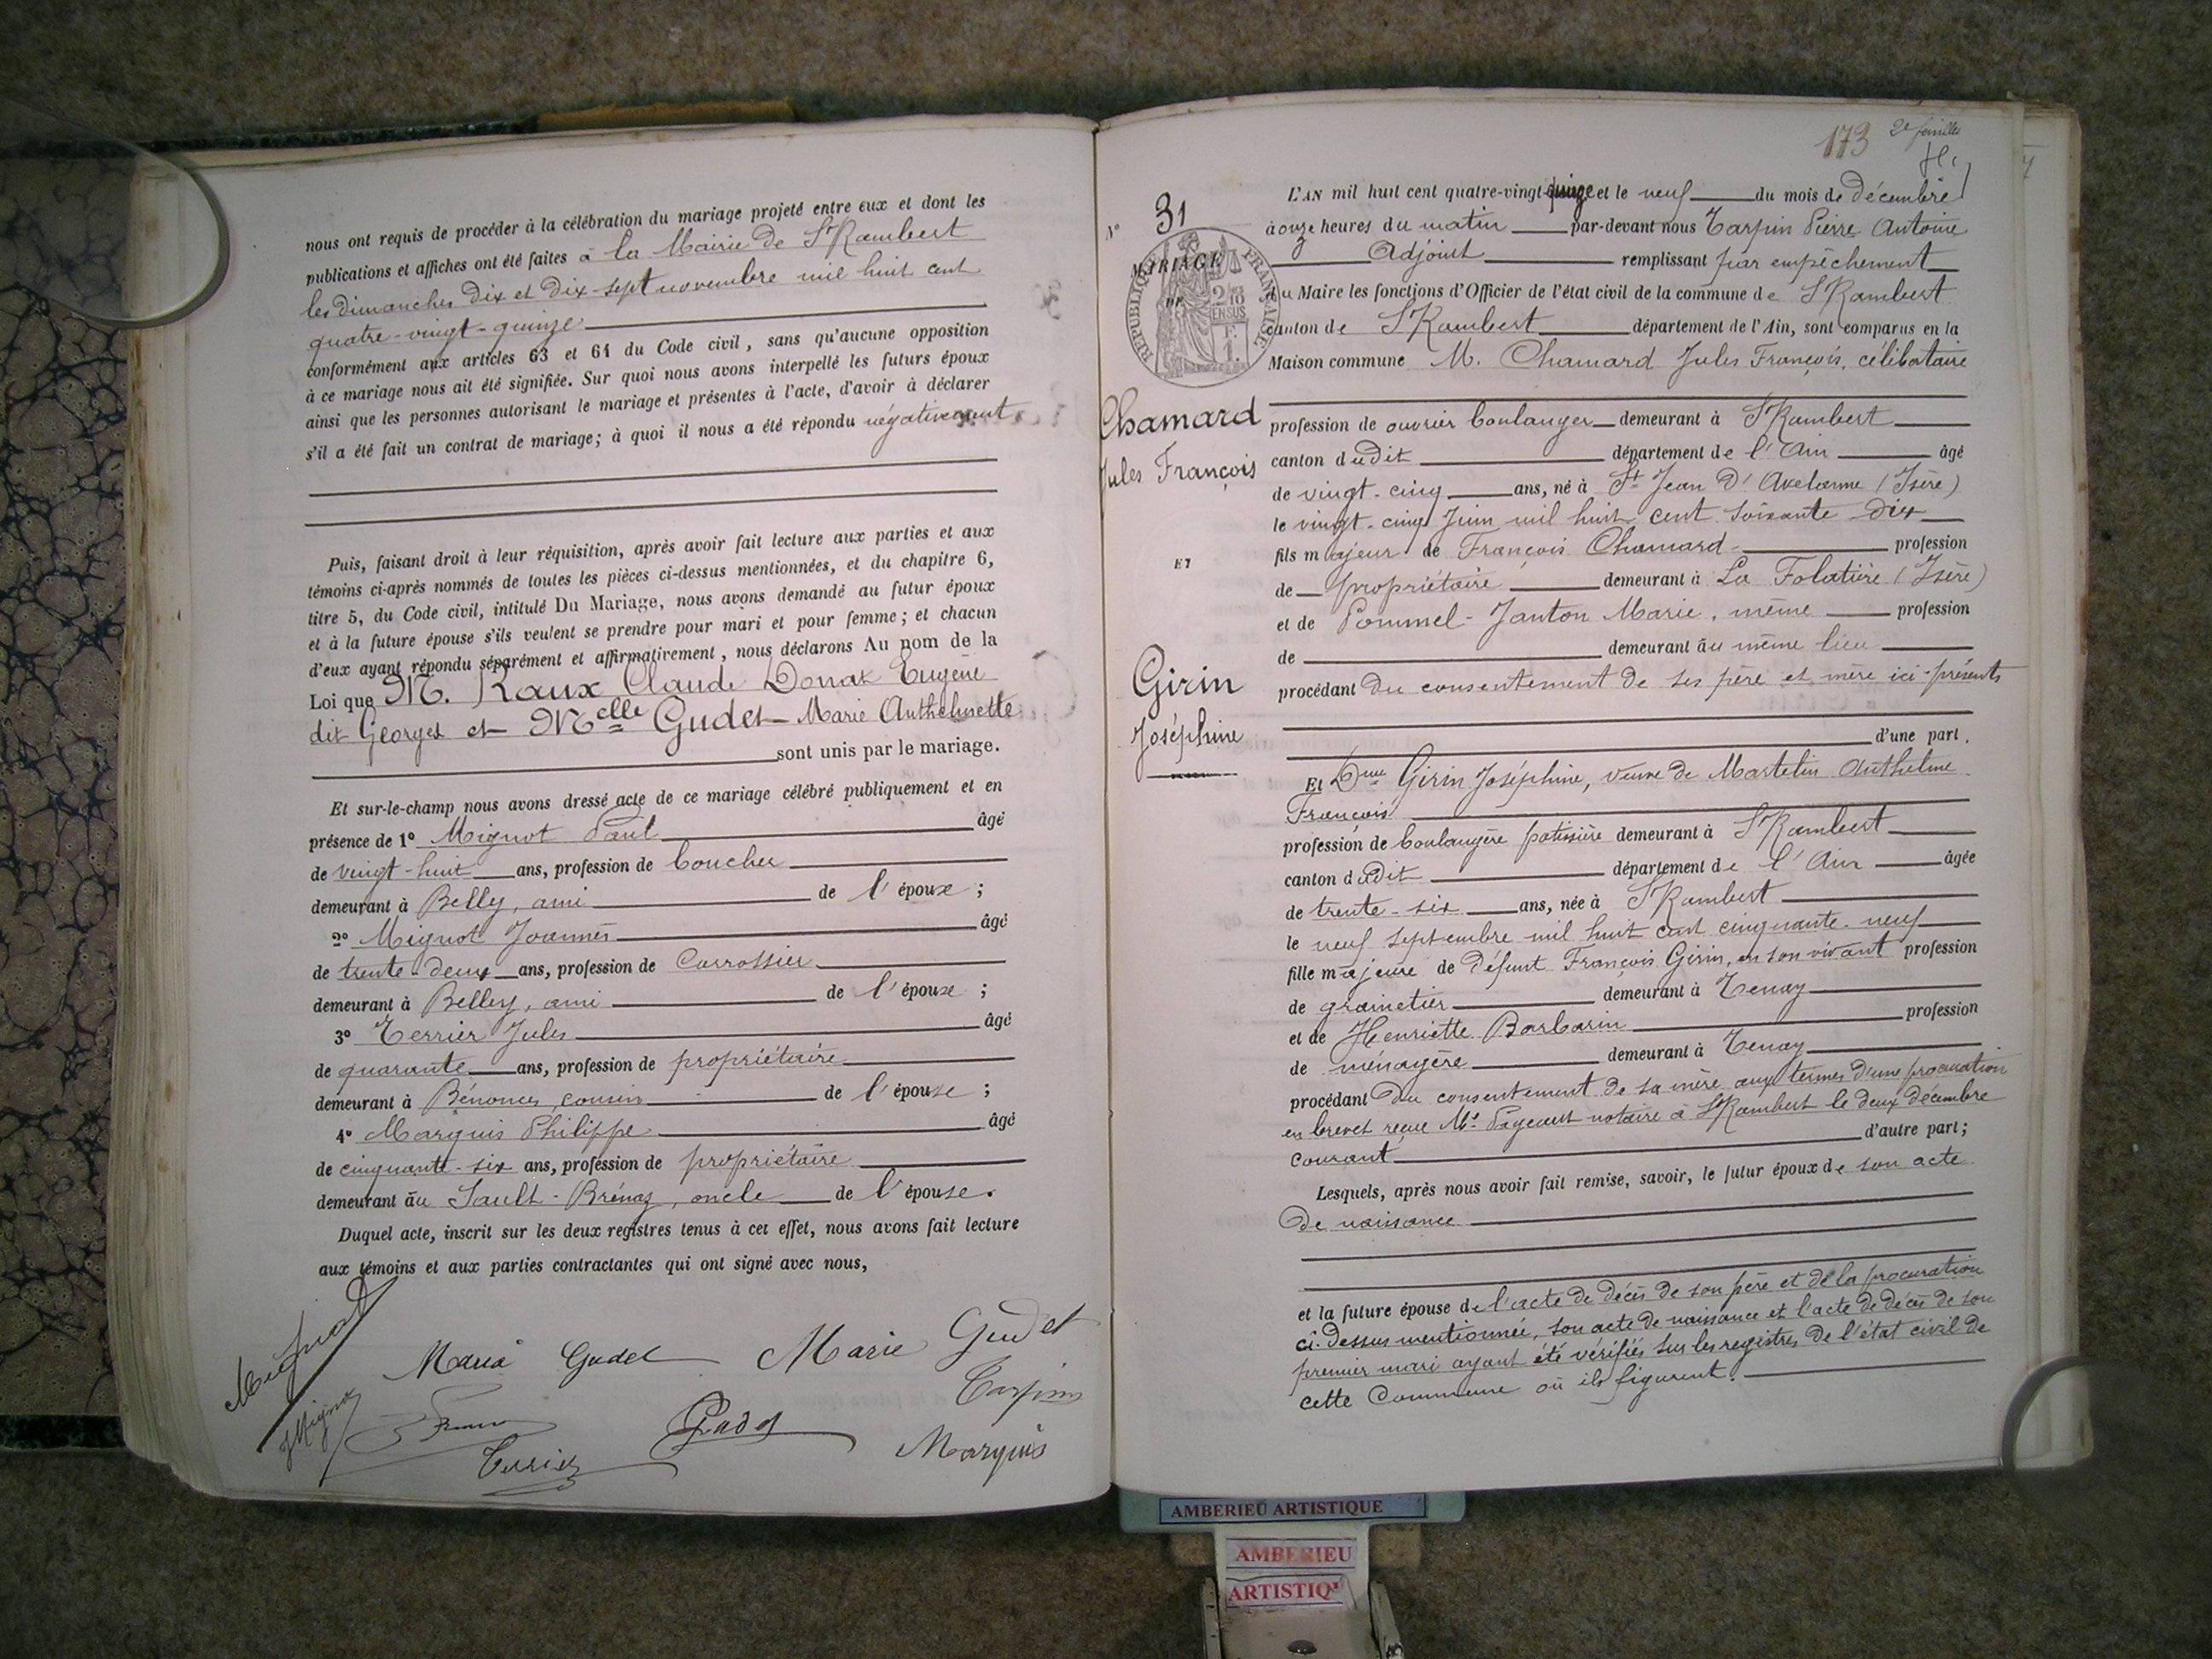 nous ont requis de procéder à la célébration du mariage projeté entre eux et dont les
publications et affiches ont été faites à la Mairie de St Rambert
les dimanches dix et dix-sept novembre mil huit cent
quatre-vingt-quinze
conformément aux articles 63 et 64 du Code civil, sans qu'aucune opposition
à ce mariage nous ait été signifiée. Sur quoi nous avons interpellé les futurs époux
ainsi que les personnes autorisant le mariage et présentes à l'acte, d'avoir à déclarer
s'il a été fait un contrat de mariage; à quoi il nous a été répondu négativement
Puis, faisant droit à leur réquisition, après avoir fait lecture aux parties et aux
témoins ci-après nommés de toutes les pièces ci-dessus mentionnées, et du chapitre 6,
titre 5, du Code civil, intitulé Du Mariage, nous avons demandé au futur époux
et à la future épouse s'ils veulent se prendre pour mari et pour femme; et chacun
d'eux ayant répondu séparément et affirmativement, nous déclarons Au nom de la
Loi que M. Raux Claude Donat Eugène
dit Georges et Melle Gudet Marie Anthelmette
sont unis par le mariage.
Et sur-le-champ nous avons dressé acte de ce mariage célébré publiquement et en
présence de 1º Mignot Paul âgé
de vingt-huit ans, profession de boucher
demeurant à Belley, ami de l'époux ;
2º Mignot Joannès âgé
de trente-deux ans, profession de Carrossier
demeurant à Belley, ami de l'époux ;
3º Terrier Jules âgé
de quarante ans, profession de propriétaire
demeurant à Bénonces, cousin de l'épouse ;
4º Marquis Philippe âgé
de cinquante-six ans, profession de propriétaire
demeurant au Sault-Brénaz, oncle de l'épouse.
Duquel acte, inscrit sur les deux registres tenus à cet effet, nous avons fait lecture
aux témoins et aux parties contractantes qui ont signé avec nous,
Mignot
Maria Gudet
Marie Gudet
Tarpin
JMignot
Gudet
Terrier
Marquis
173
2e feuille
Nº 31
MARIAGE
DE
RÉPUBLIQUE FRANÇAISE
Chamard
Jules François
ET
Girin
Joséphine
L'AN mil huit cent quatre-vingt-quinze et le neuf du mois de décembre
à onze heures du matin par-devant nous Tarpin Pierre Antoine
Adjoint remplissant par empêchement
du Maire les fonctions d'Officier de l'état civil de la commune de St Rambert
canton de St Rambert département de l'Ain, sont comparus en la
Maison commune M. Chamard Jules François, célibataire
profession de ouvrier boulanger demeurant à St Rambert
canton dudit département de l'Ain âgé
de vingt-cinq ans, né à St Jean d'Avelanne (Isère)
le vingt-cinq Juin mil huit cent soixante dix
fils majeur de François Chamard profession
de propriétaire demeurant à La Folatière (Isère)
et de Pommel-Janton Marie, même profession
de demeurant au même lieu
procédant du consentement de ses père et mère ici-présents
d'une part.
Et Dme Girin Joséphine, veuve de Martelin Anthelme
François
profession de boulangère patissière demeurant à St Rambert
canton dudit département de l'Ain âgée
de trente-six ans, née à St Rambert
le neuf septembre mil huit cent cinquante-neuf
fille majeure de défunt François Girin, en son vivant profession
de grainetier demeurant à Tenay
et de Henriette Barbarin profession
de ménagère demeurant à Tenay
procédant du consentement de sa mère aux termes d'une procuration
en brevet reçue Me notaire à St Rambert le deux décembre
courant d'autre part;
Lesquels, après nous avoir fait remise, savoir, le futur époux de son acte
de naissance
et la future épouse de l'acte de décès de son père et de la procuration
ci-dessus mentionnée, son acte de naissance et l'acte de décès de son
premier mari ayant été vérifiés sur les registres de l'état civil de
cette Commune où ils figurent.
AMBERIEU ARTISTIQUE
AMBERIEU
ARTISTIQ